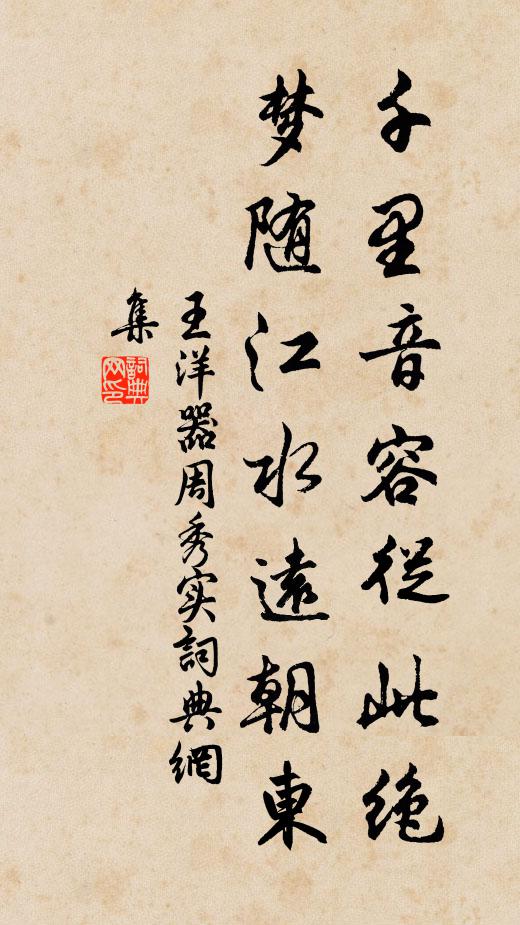 千里音容從此绝
梦随江水遠朝東
王洋器周秀实詞典網
集
詞典
网印